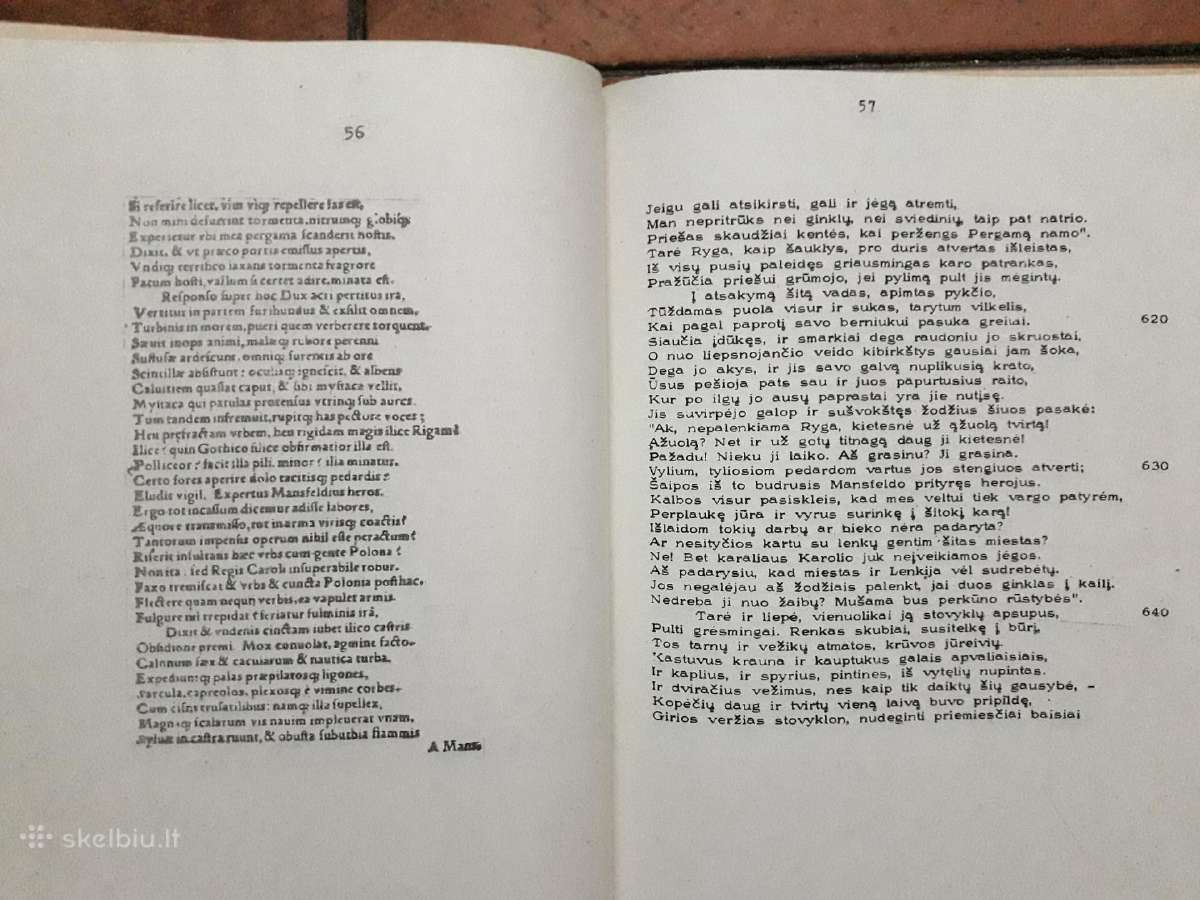 56
Si referire licet, vim viq; repellere fas est,
Non mihi defuerint tormenta, nitrumq; globiq;
Experietur vbi mea pergama scanderit hostis.
Dixit, & vt præco portis emissus apertis,
Vndiq; terribco laxans tormenta fragrore
Pacum hosti, vallum si certet adire, minata est.
Responso super hoc Dux acri percitus ira,
Vertitur in partem furibundus & exsilit omnem,
Turbinis in morem, pueri quem verbere torquent.
Sævit inops animi, malæq; rubore perenni
Suffusæ ardescunt, omniq; furentis ab ore
Scintillæ absistunt: oculisq; ignescit, & albens
Caluitiem quassat caput, & sibi mystaca vellit,
Mystaca qui patulas protensus vtrinq; sub aures.
Tum tandem infremuit, rupitq; has pectore voces;
Heu præfractam vrbem, heu rigidam magis ilice Rigam!
Ilice? quin Gothico silice obfirmatior illa est.
Polliceor? facit illa pili. minor? illa minatur.
Certo fores aperire dolo tacitisq; pedardis?
Eludit vigil. Expertus Mansfeldius heros.
Ergo tot incassum dicemur adisse labores,
Æquore transmisso, tot in arma virisq; coactis?
Tantorum impensis operum nihil esse peractum?
Riserit insultans hæc vrbs cum gente Polona?
Non ita: sed Regis Caroli insuperabile robur.
Faxo tremiscat & vrbs & cuncta Polonia posthac.
Flectere quam nequij verbis, ea vapulet armis.
Fulgure ni trepidat? feriatur fulminis irâ.
Dixit & vndenis cinctam iubet ilico castris
Obsidione premi. Mox conuolat, agmine facto
Calonum fæx & cacularum & nautica turba.
Expediuntq; palas præpilatosq; ligones,
Sarcula, capreolos, plexosq; è vimine corbes,
Cum cisiis trusatilibus: namq; illa supellex,
Magnaq; scalarum vis nauim impleuerat vnam,
Syluæ in castra ruunt, & obusta suburbia flammis
A Mans-
57
Jeigu gali atsikirsti, gali ir jėgą atremti,
Man nepritrūks nei ginklų, nei sviedinių, taip pat natrio.
Priešas skaudžiai kentės, kai peržengs Pergamą namo".
Tarė Ryga, kaip šauklys, pro duris atvertas išleistas,
Iš visų pusių paleidęs griausmingas karo patrankas,
Pražūčia priešui grūmojo, jei pylimą pult jis mėgintų.
Į atsakymą šitą vadas, apimtas pykčio,
Tūždamas puola visur ir sukas, tarytum vilkelis,
Kai pagal paprotį savo berniukui pasuka greitai. 620
Siaučia įdūkęs, ir smarkiai dega raudoniu jo skruostai,
O nuo liepsnojančio veido kibirkštys gausiai jam šoka,
Dega jo akys, ir jis savo galvą nuplikusią krato,
Ūsus pešioja pats sau ir juos papurtusius raito,
Kur po ilgų jo ausų paprastai yra jie nutįsę.
Jis suvirpėjo galop ir sušvokštęs žodžius šiuos pasakė:
"Ak, nepalenkiama Ryga, kietesnė už ąžuolą tvirtą!
Ąžuolą? Net ir už gotų titnagą daug ji kietesnė!
Pažadu! Nieku ji laiko. Aš grasinu? Ji grasina.
Vylium, tyliosiom pedardom vartus jos stengiuos atverti; 630
Šaipos iš to budrusis Mansfeldo prityręs herojus.
Kalbos visur pasiskleis, kad mes veltui tiek vargo patyrėm,
Perplaukę jūra ir vyrus surinkę į šitokį karą!
Išlaidom tokių darbų ar bieko nėra padaryta?
Ar nesityčios kartu su lenkų gentim šitas miestas?
Ne! Bet karaliaus Karolio juk neįveikiamos jėgos.
Aš padarysiu, kad miestas ir Lenkija vėl sudrebėtų.
Jos negalėjau aš žodžiais palenkt, jai duos ginklas į kailį.
Nedreba ji nuo žaibų? Mušama bus perkūno rūstybės".
Tarė ir liepė, vienuolikai ją stovyklų apsupus, 640
Pulti grėsmingai. Renkas skubiai, susitelkę į būrį,
Tos tarnų ir vežikų atmatos, krūvos jūreivių.
Kastuvus krauna ir kauptukus galais apvaliaisiais,
Ir kaplius, ir spyrius, pintines, iš vytelių nupintas.
Ir dviračius vežimus, nes kaip tik daiktų šių gausybė, –
Kopėčių daug ir tvirtų vieną laivą buvo pripildę,
Girios veržias stovyklon, nudeginti priemiesčiai baisiai
skelbiu.lt